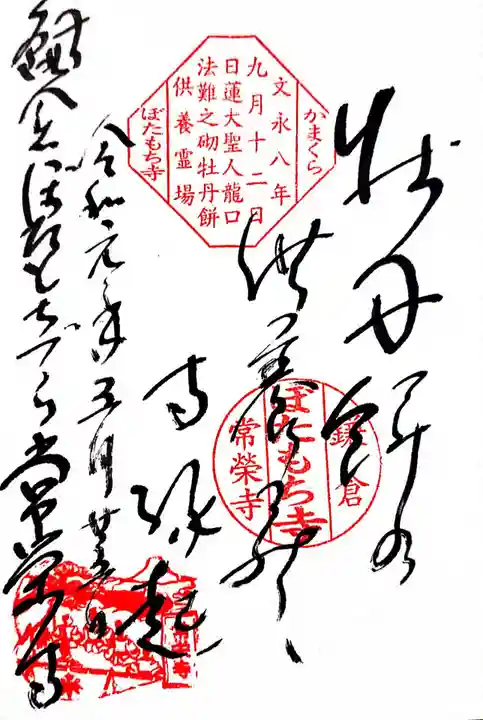 かまくら
文永八年
九月十二日
日蓮大聖人龍口
法難之砌牡丹餅
供養霊場
ぼたもち寺
牡丹餅
供養
寺縁起
鎌倉
ぼたもち寺
常榮寺
令和元年五月廿五日
鎌倉ぼたもちでら常栄寺